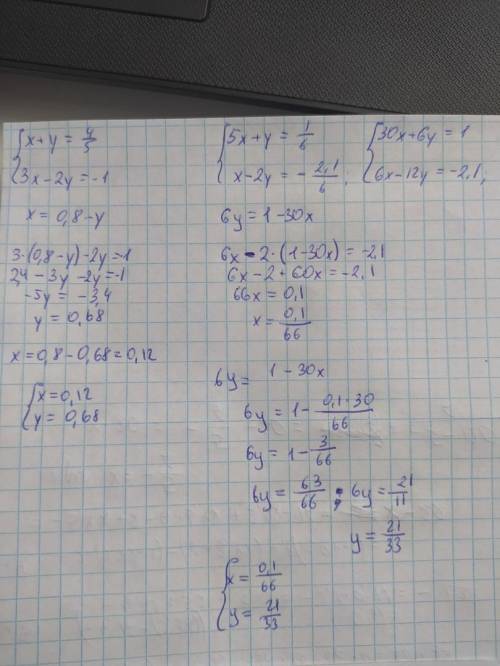 {x+y = 4/5
3x-2y = -1
x = 0,8-y
3·(0,8-y)-2y=-1
2,4-3y-2y=-1
-5y = -3,4
y = 0,68
x=0,8-0,68=0,12
{x=0,12
y = 0,68
{5x+y = 1/6
x-2y = - 2,1/6,
{30x+6y = 1
6x-12y = -2,1,
6y = 1-30x
6x-2·(1-30x) = -2,1
6x-2+60x = -2,1
66x = 0,1
x = 0,1/66
6y = 1-30x
6y = 1- 0,1·30/66
6y = 1- 3/66
6y = 63/66 ; 6y = 21/11
y = 21/33
{x = 0,1/66
y = 21/33